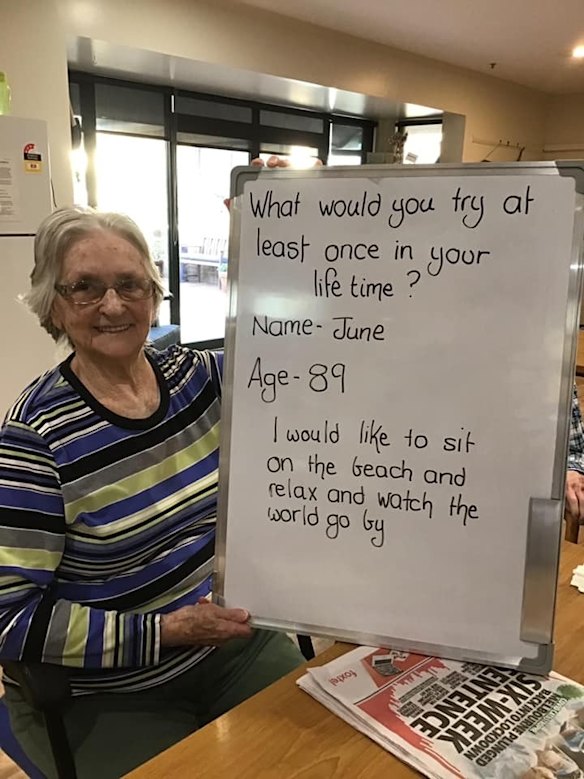 What would you try at
least once in your
life time ?
Name - June
Age - 89
I would like to sit
on the beach and
relax and watch the
world go by
foxtel
SIX-WEEK
SENTENCE